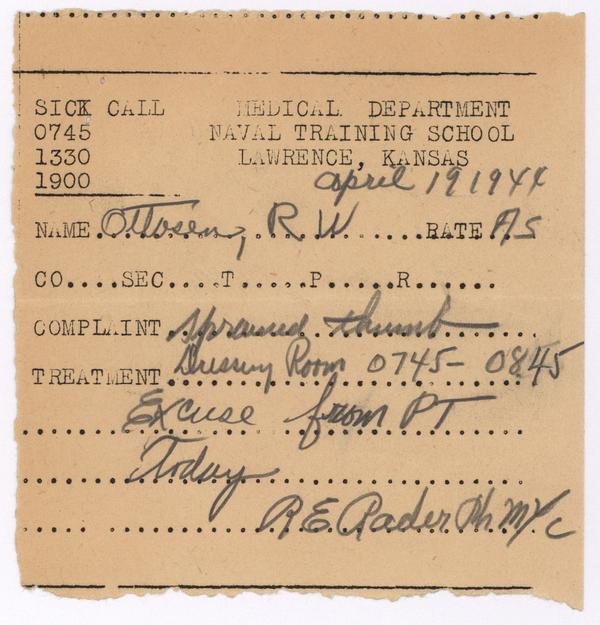 SICK CALL MEDICAL DEPARTMENT
0745 NAVAL TRAINING SCHOOL
1330 LAWRENCE, KANSAS
1900 April 19 1944
NAME Ottosen, R. W RATE AS
CO....SEC....T.....P.....R......
COMPLAINT sprained thumb
TREATMENT Dressing Room 0745- 0845
Excuse from PT
Today
R E Rader Ph M 1/c